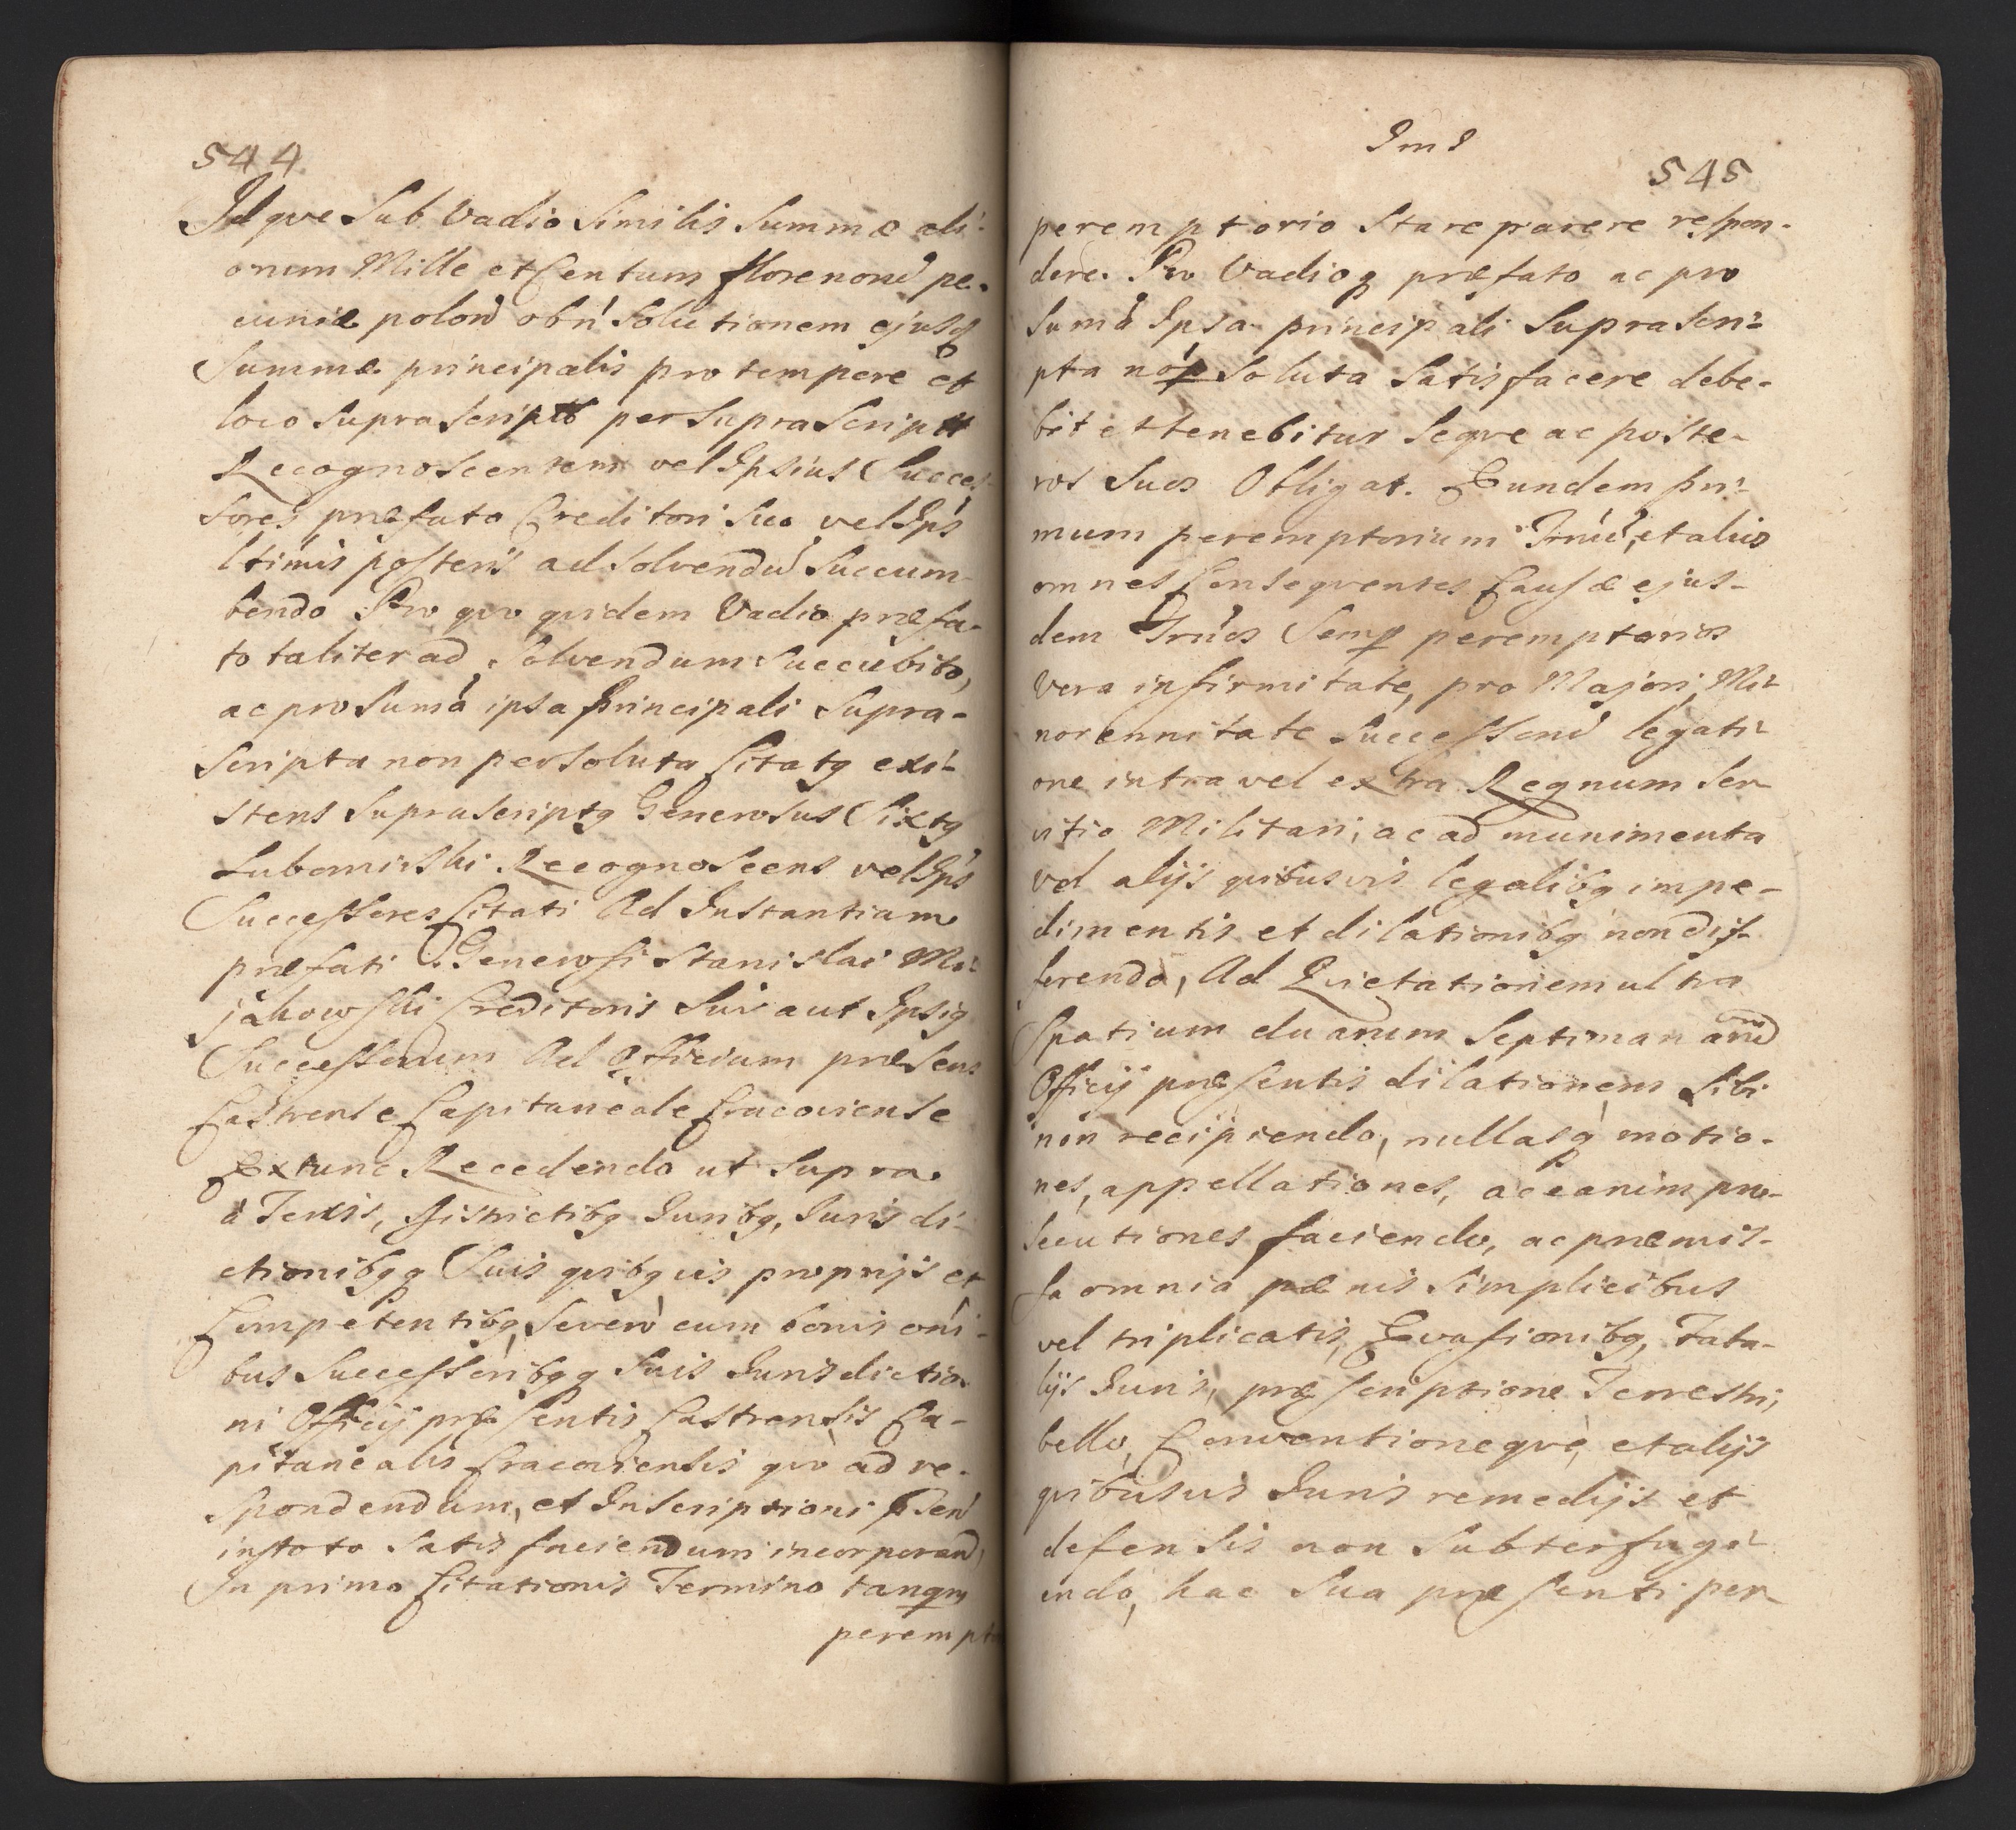 544
Idqve Sub Vadio Similis Summæ ali-
orum Mille et Centum florenorũ pe-
cuniæ polon̄ ob n̄ Solutionem ejusd̨
Summæ principalis pro tempore et
loco Suprascripto per Suprascript̄
Recognoscentem vel Ipsius Succes-
sores præfato Creditori Suo vel Ips̄
ltimis posteris ad Solvendũ Succum-
bendo Pro qvo qvidem Vadio præfa-
to taliter ad Solvendum Succũbito,
ac pro Sum̄a ipsa Principali Supra-
scripta non persoluta Citatq exi-
stens Suprascriptq Generosus Sixtq
Lubomirski Recognoscens vel Ips̄
Successores Citati Ad Instantiam
præfati Generosi Stanislai Mi-
jakowski Creditoris Sui aut Ipsiq
Successorum Ad Officium præsens
Castrense Capitaneale Cracoviense
Extunc Recedendo ut Supra
à Terris, Districtibq Juribq, Jurisdi-
ctionibqq Suis qvibqvis proprijs et
Competentibq, Severò cum bonis om̄i-
bus Successoribqq Suis Jurisdictio
ni Officij præsentis Castrensis Ca-
pitanealis Cracoviensis qvò ad re-
spondendum, et Inscriptioni p̄sen̄
in toto Satis faciendum incorporand̄
In primo Citationis Termino tanqm̄
perempto
Im̄ I
545
peremptorio Stare parere respon-
dere. Pro Vadioq præfato ac pro
Sum̄a Ipsa principali Suprascri-
pta nōp Soluta Satisfacere debe-
bit et tenebitur Seqve ac poste-
ros Suos Obligat. Eundem pri-
mum peremptorium Trm̄ũ, et alios
omnes Conseqventes Causæ ejus-
dem Trm̄os Semp peremptorios
Vera infirmitate, pro Majori, Mi-
norennitate Successorũ legati-
one intra vel extra Regnum Ser
vitio Militari, ac ad munimenta
vel alijs qvibusvis legalibq impe-
dimentis et dilationibq non dif-
ferendo, Ad Qvietationem ultra
Spatium duarum Septimanarũ
Officij præsentis dilationem Sibi
non recipiendo, nullasq̀ motio-
nes, appellationes, ac eārum pro-
secutiones faciendo, ac præmis-
sa omnia pænis Simplicibus
vel triplicatis, Evasionibq, Fata-
lijs Juris, præscriptione Terrestri,
bello, Conventioneqvè, et alijs
qvibusvis Juris remedijs et
defensis non Subterfugi-
endo, hac Sua præsenti per